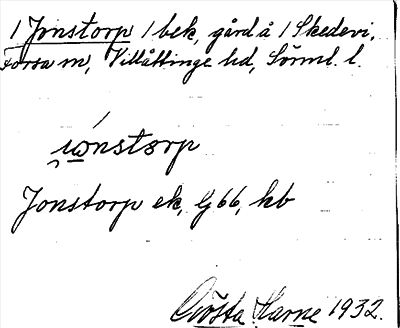 1 Jonstorp 1 bek, gård å 1 Skedevi,
Forsa m, Villåttinge hd, Sörml. l.
Jonstorp ek, G 66, kb
Gösta Harne 1932.